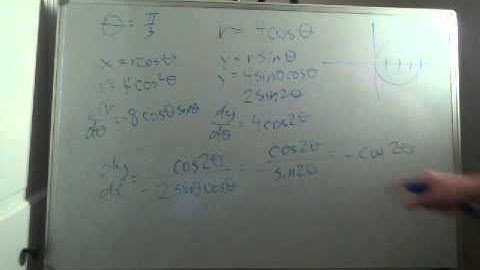 θ = π/3
r = 4cosθ
x = rcosθ
y = rsinθ
x = 4cos²θ
y = 4sinθcosθ
2sin2θ
dx/dθ = -8cosθsinθ
dy/dθ = 4cos2θ
dy/dx = cos2θ/-2sinθcosθ = cos2θ/-sin2θ = -cot2θ